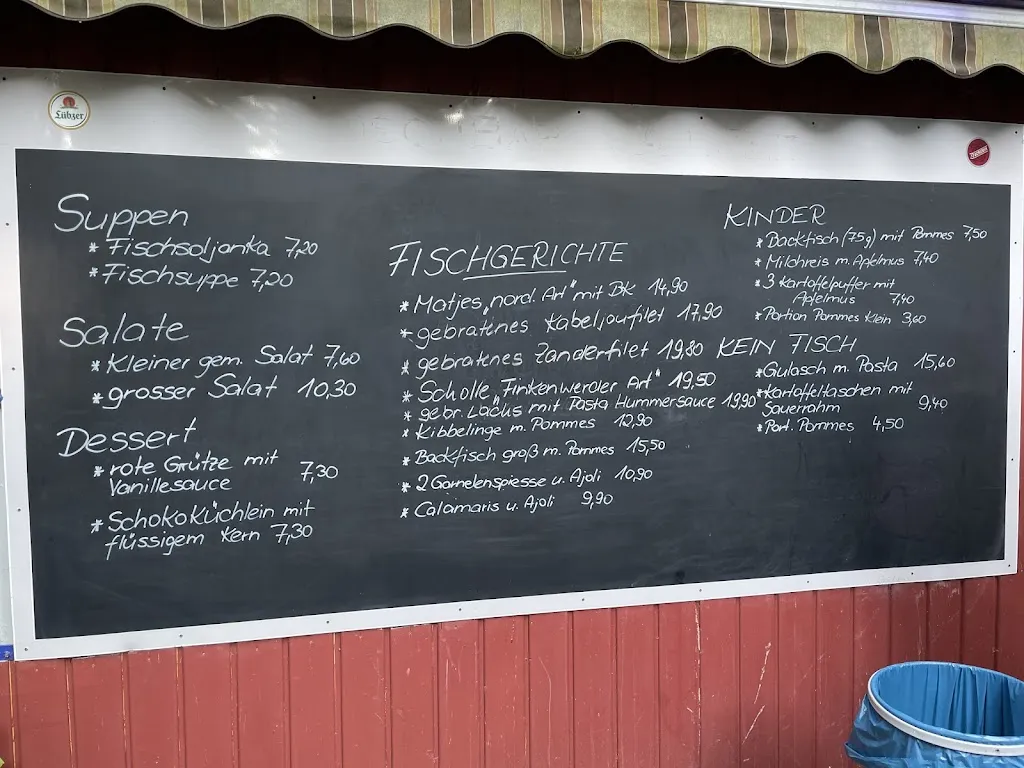 Lübzer
Suppen
* Fischsoljanka 7,20
* Fischsuppe 7,20
Salate
* Kleiner gem. Salat 7,60
* grosser Salat 10,30
Dessert
* rote Grütze mit
Vanillesauce 7,30
* Schokoküchlein mit
flüssigem Kern 7,30
FISCHGERICHTE
* Matjes „nord. Art" mit BK 14,90
* gebratenes Kabeljaufilet 17,90
* gebratenes Zanderfilet 19,80
* Scholle „Finkenwerder Art" 19,50
* gebr. Lachs mit Pasta Hummersauce 19,90
* Kibbelinge m. Pommes 12,90
* Backfisch groß m. Pommes 15,50
* 2 Garnelenspiesse u. Ajoli 10,90
* Calamaris u. Ajoli 9,90
KINDER
* Backfisch (75g) mit Pommes 7,50
* Milchreis m. Apfelmus 7,40
* 3 Kartoffelpuffer mit
Apfelmus 7,40
* Portion Pommes Klein 3,60
KEIN FISCH
* Gulasch m. Pasta 15,60
* Kartoffeltaschen mit
Sauerrahm 9,40
* Port. Pommes 4,50